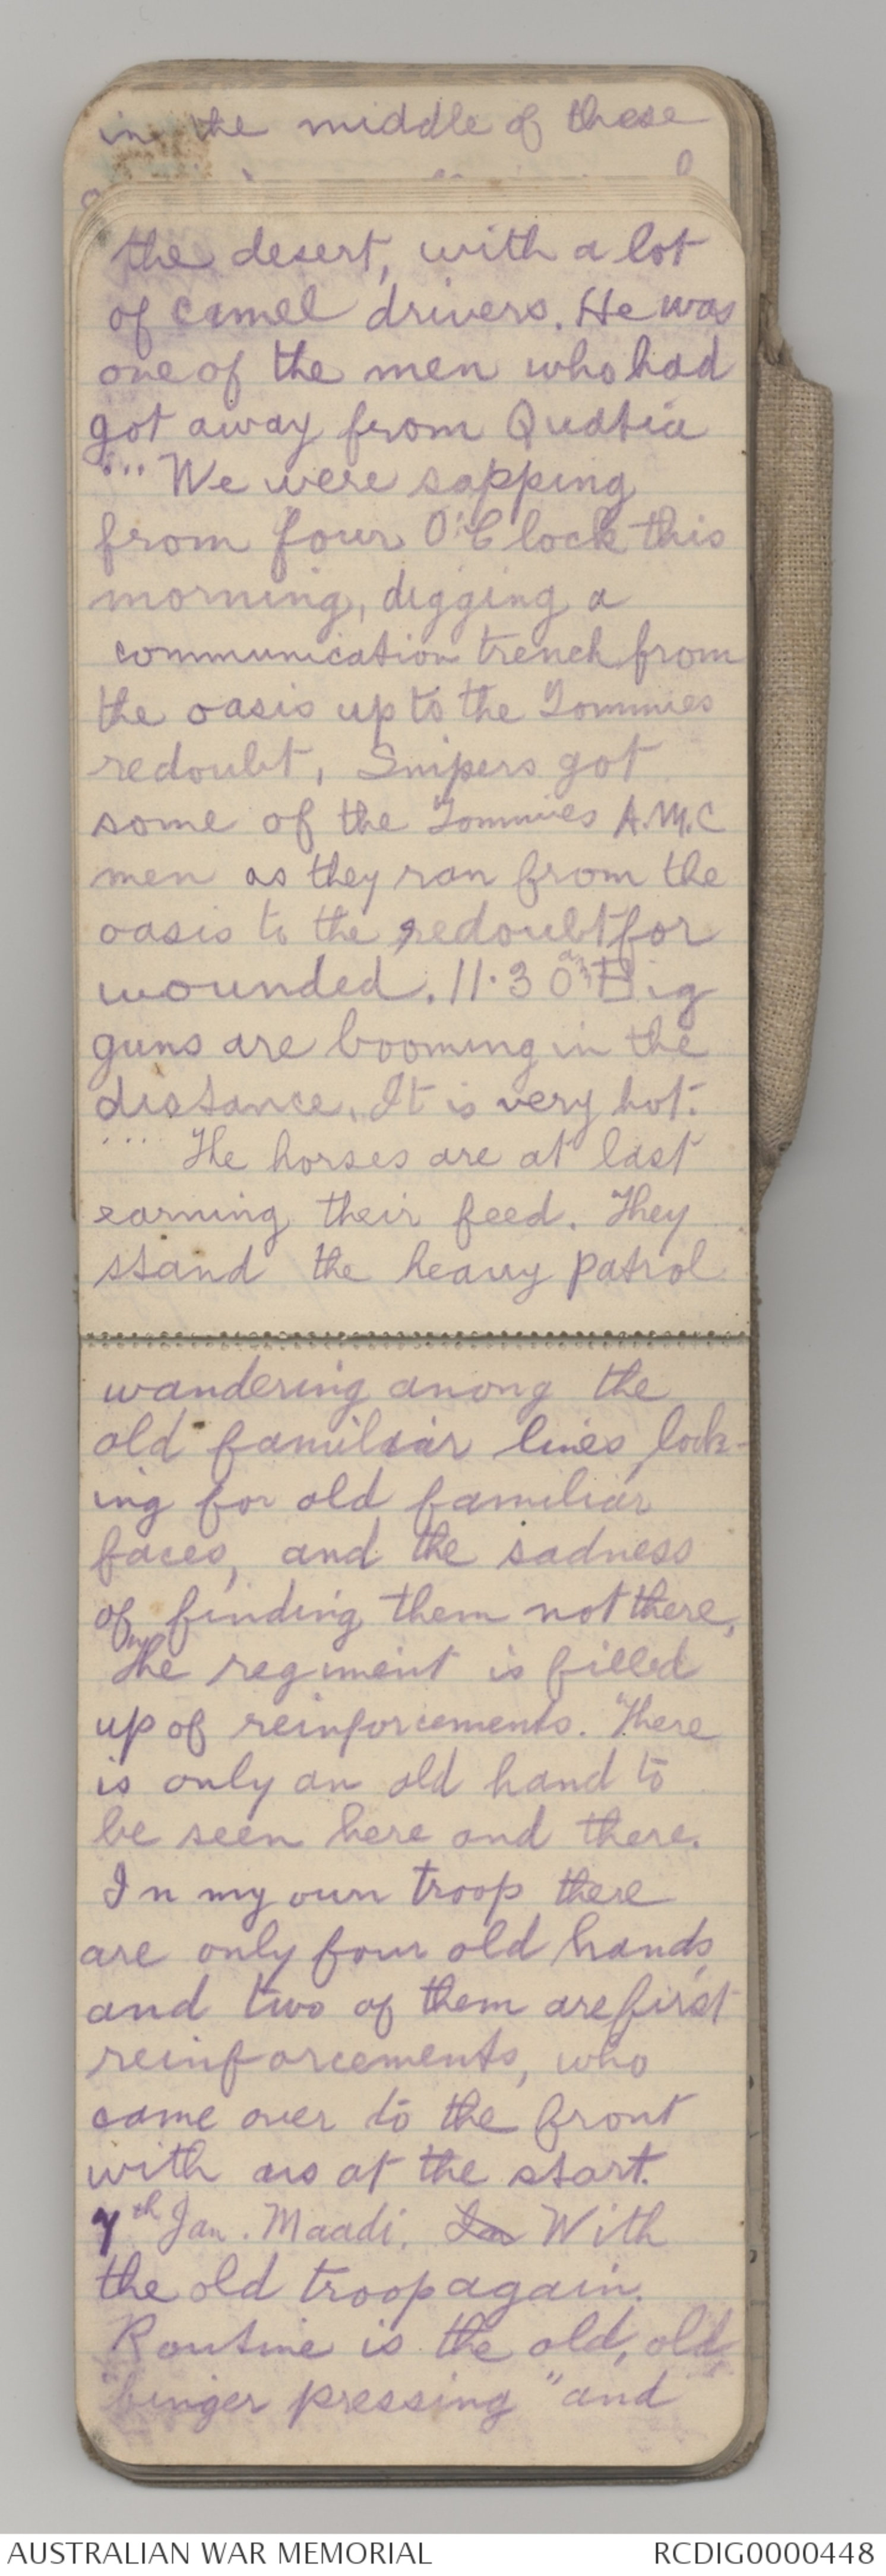 in the middle of these
the desert, with a lot
of camel drivers. He was
one of the men who had
got away from Quatia
"' We were sapping
from four O'Clock this
morning, digging a
communication trench from
the oasis up to the Tommies
redoubt, Snipers got
some of the Tommies A.M.C
men as they ran from the
oasis to the redoubt for
wounded. 11.30 am Big
guns are booming in the
distance. It is very hot.
.... The horses are at last
earning their feed. They
stand the heavy patrol
wandering among the
old familiar lines, look-
ing for old familiar
faces, and the sadness
of finding them not there,
The regiment is filled
up of reinforcements. There
is only an old hand to
be seen here and there.
In my own troop there
are only four old hands,
and two of them are first
reinforcements, who
came over to the front
with us at the start.
7th Jan. Maadi. In With
the old troop again.
Routine is the old, old
pressing" and
AUSTRALIAN WAR MEMORIAL
RCDIG0000448